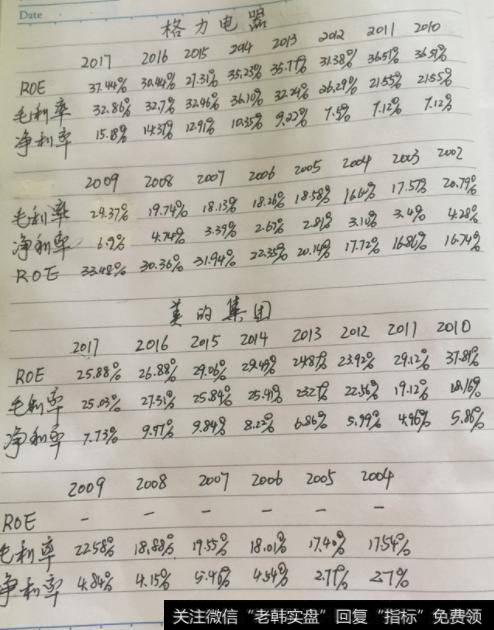 Date
格力电器
2017 2016 2015 2014 2013 2012 2011 2010
ROE 37.44% 30.44% 27.31% 35.23% 35.77% 31.38% 36.51% 36.51%
毛利率 32.86% 32.7% 32.46% 36.10% 32.24% 26.29% 21.55% 21.55%
净利率 15.18% 14.31% 12.91% 10.35% 9.22% 7.5% 7.12% 7.12%
2009 2008 2007 2006 2005 2004 2003 2002
毛利率 24.37% 19.74% 18.13% 18.26% 18.58% 16.6% 17.57% 20.79%
净利率 6.9% 4.74% 3.39% 2.67% 2.81% 3.1% 3.4% 4.28%
ROE 33.48% 30.36% 31.94% 22.35% 20.14% 17.72% 16.86% 16.74%
美的集团
2017 2016 2015 2014 2013 2012 2011 2010
ROE 25.88% 26.88% 29.06% 29.49% 24.87% 23.92% 29.12% 37.89%
毛利率 25.03% 27.31% 25.84% 25.41% 23.27% 22.56% 19.12% 18.16%
净利率 7.73% 9.97% 9.84% 8.22% 6.86% 5.99% 4.96% 5.86%
2009 2008 2007 2006 2005 2004
ROE - - - - - -
毛利率 22.58% 18.88% 19.55% 18.01% 17.40% 17.54%
净利率 4.84% 4.15% 5.46% 4.54% 2.77% 2.7%
关注微信“老韩实盘”回复“指标”免费领